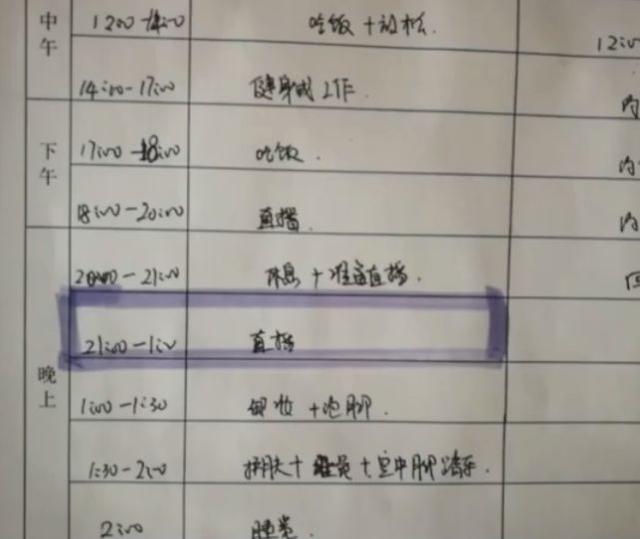 中午
12:00-14:00 吃饭+放松. 12:00
14:00-17:00 健身或工作. 内
下午
17:00-18:00 吃饭. 内
18:00-20:00 直播. 内
晚上
20:00-21:00 休息+准备直播. 回
21:00-1:00 直播
1:00-1:30 卸妆+泡脚.
1:30-2:00 护肤+ +空中脚踏车.
2:00 睡觉.